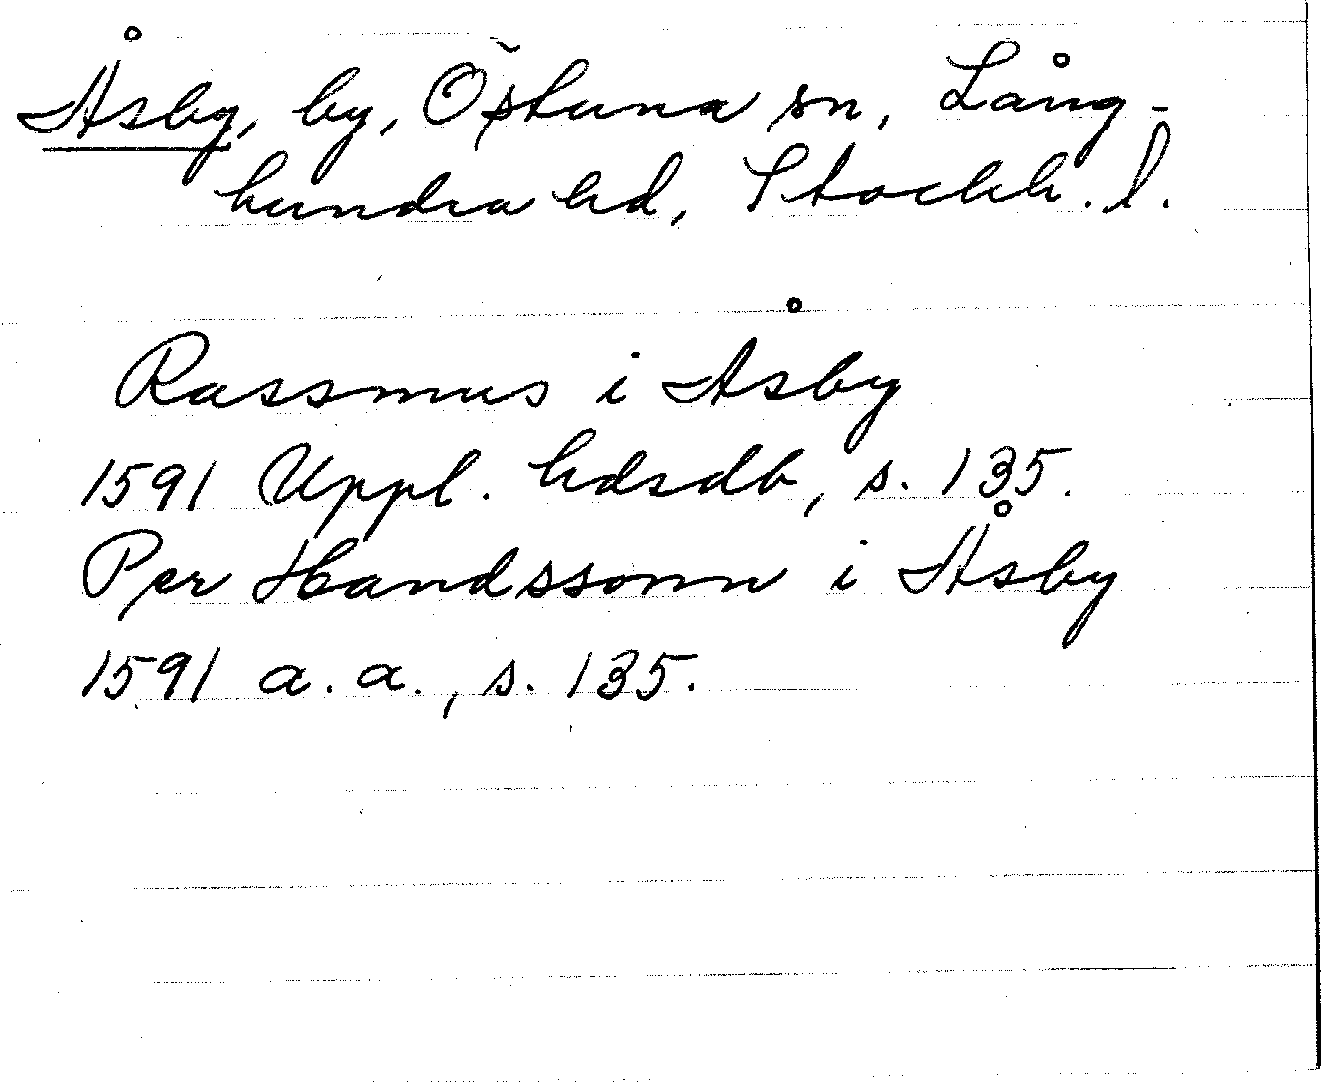 Åsby, by, Östuna sn, Lång-
hundra hd, Stockh. l.
Rassmus i Åsby
1591 Uppl. hdsdb, s. 135.
Per Handssonn i Åsby
1591 a. a., s. 135.